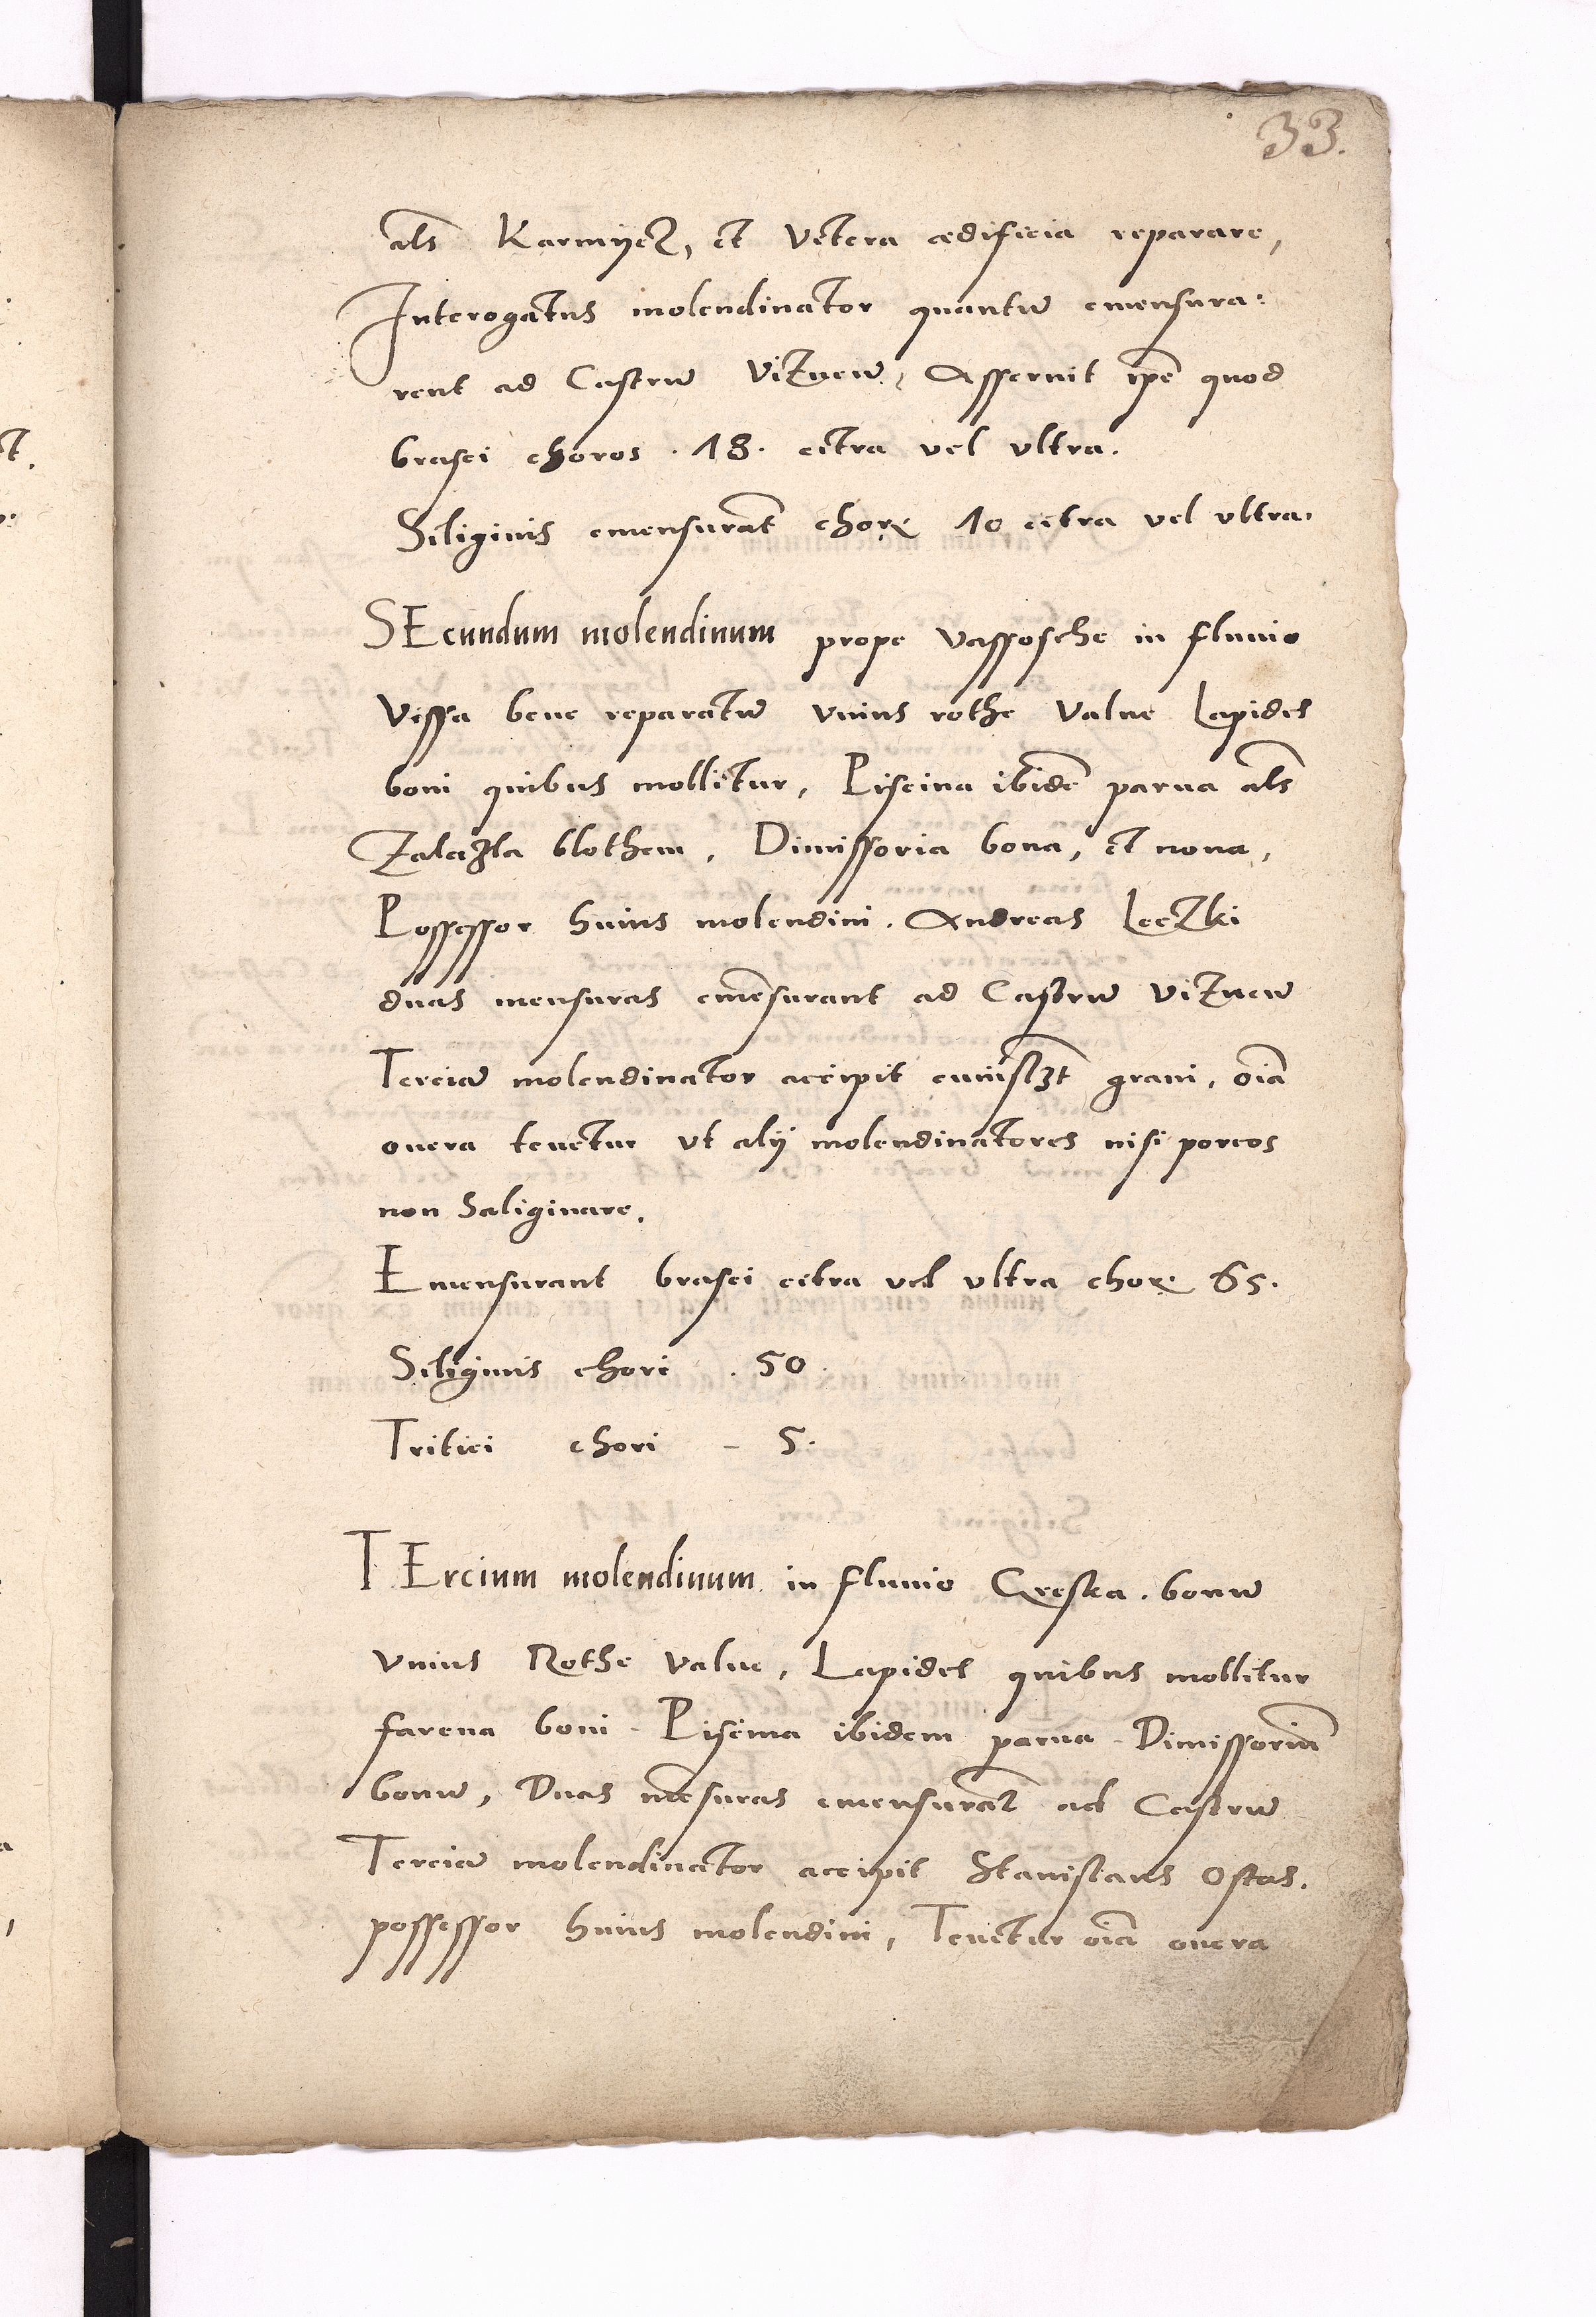 33.
als Karmijecz, et Vetera ædificia reparare,
Interogatus molendinator quantū emensura:
rent ad Castrū Viznen̄, Asseruit ip̄e quod
brasei choros . 18. citra vel vltra.
Siliginis emensurāt chorꝝ 10 citra vel vltra.
SEcundum molendinum prope vassosche in fluuio
Vissa bene reparatū vnius rothe Value Lapides
boni quibus mollitur, Piscina ibidē parua als
Zalazla blothem, Dimissoria bona, et noua,
Possessor huius molendini. Andreas Leczki
duas mensuras emēsurant ad Castrū Viznen̄
Terciā molendinator accipit cuiuslꝫt grani, oīa
onera tenetur vt alij molendinatores nisi porcos
non Saliginare.
Emensurant brasei citra vel vltra chorꝝ 65.
Siliginis chori . 50.
Tritici chori - 5.
TErcium molendinum in fluuio Cresca. bonū
vnius Rothe value, Lapides quibus mollitur
farena boni. Piscina ibidem parua. Dimissoriū
bonū, Duas mēsuras emensurāt ad Castrū
Terciā molendinator accipit Stanislaus Ostas.
possessor huius molendini, Tenetur oīa onera